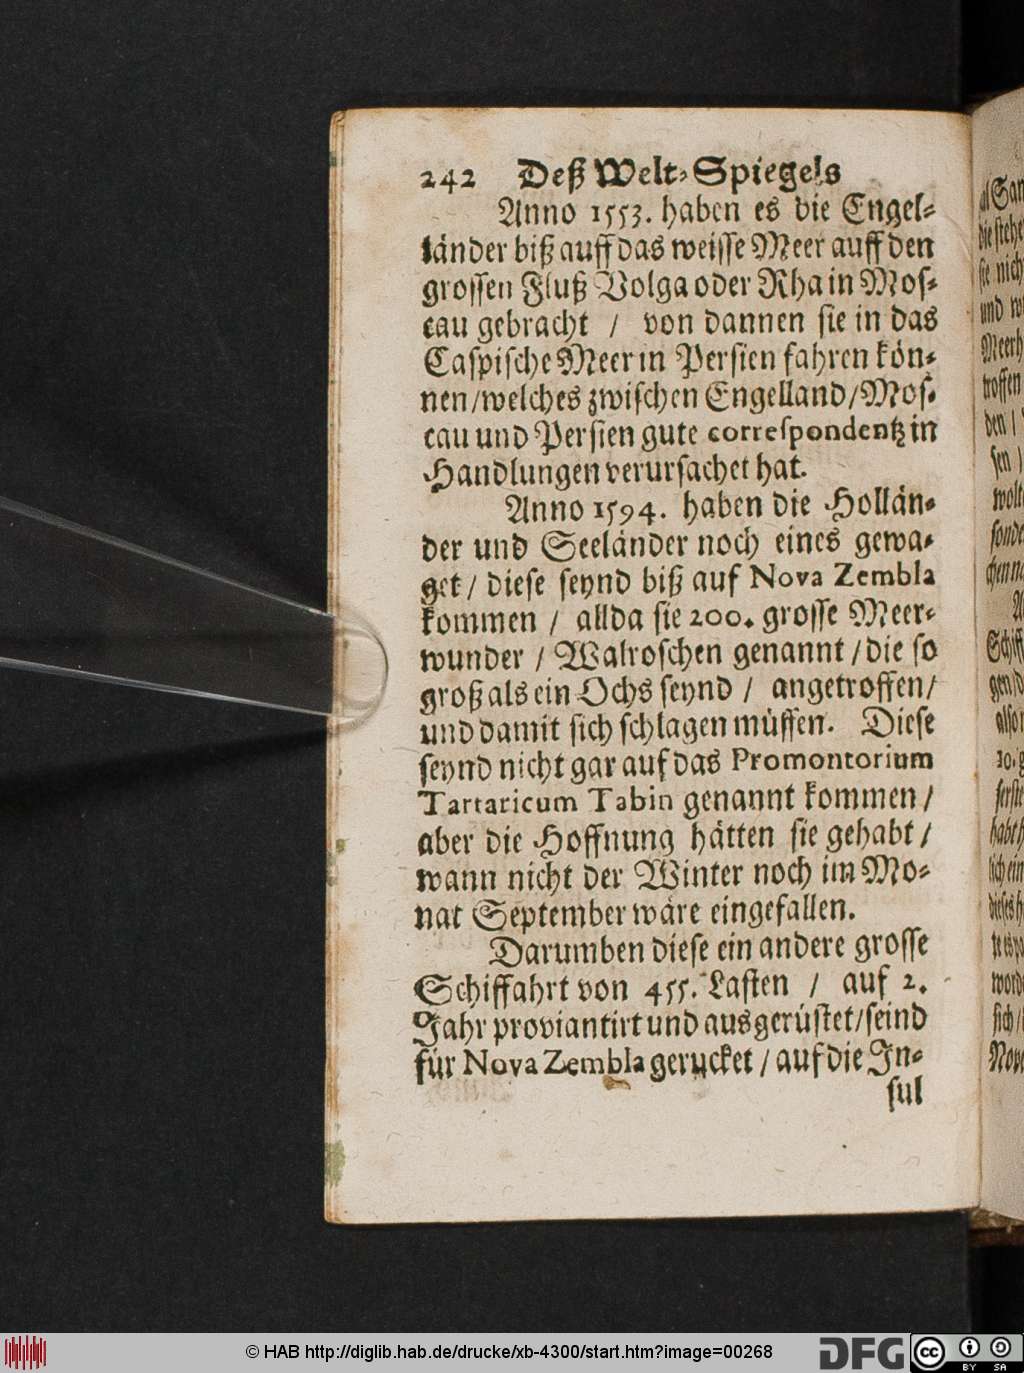 242 Deß Welt-Spiegels
Anno 1553. haben es die Engel-
länder biß auff das weisse Meer auff den
grossen Fluß Volga oder Rha in Mos-
cau gebracht / von dannen sie in das
Caspische Meer in Persien fahren kön-
nen/welches zwischen Engelland/Mos-
cau und Persien gute correspondentz in
Handlungen verursachet hat.
Anno 1594. haben die Hollän-
der und Seeländer noch eines gewa-
get / diese seynd biß auf Nova Zembla
kommen / allda sie 200. grosse Meer-
wunder / Walroschen genannt / die so
groß als ein Ochs seynd / angetroffen/
und damit sich schlagen müssen. Diese
seynd nicht gar auf das Promontorium
Tartaricum Tabin genannt kommen /
aber die Hoffnung hätten sie gehabt /
wann nicht der Winter noch im Mo-
nat September wäre eingefallen.
Darumben diese ein andere grosse
Schiffahrt von 455. Lasten / auf 2.
Jahr proviantirt und ausgerüstet/seind
für Nova Zembla gerucket / auf die In-
sul
© HAB http://diglib.hab.de/drucke/xb-4300/start.htm?image=00268
DFG
cc BY SA